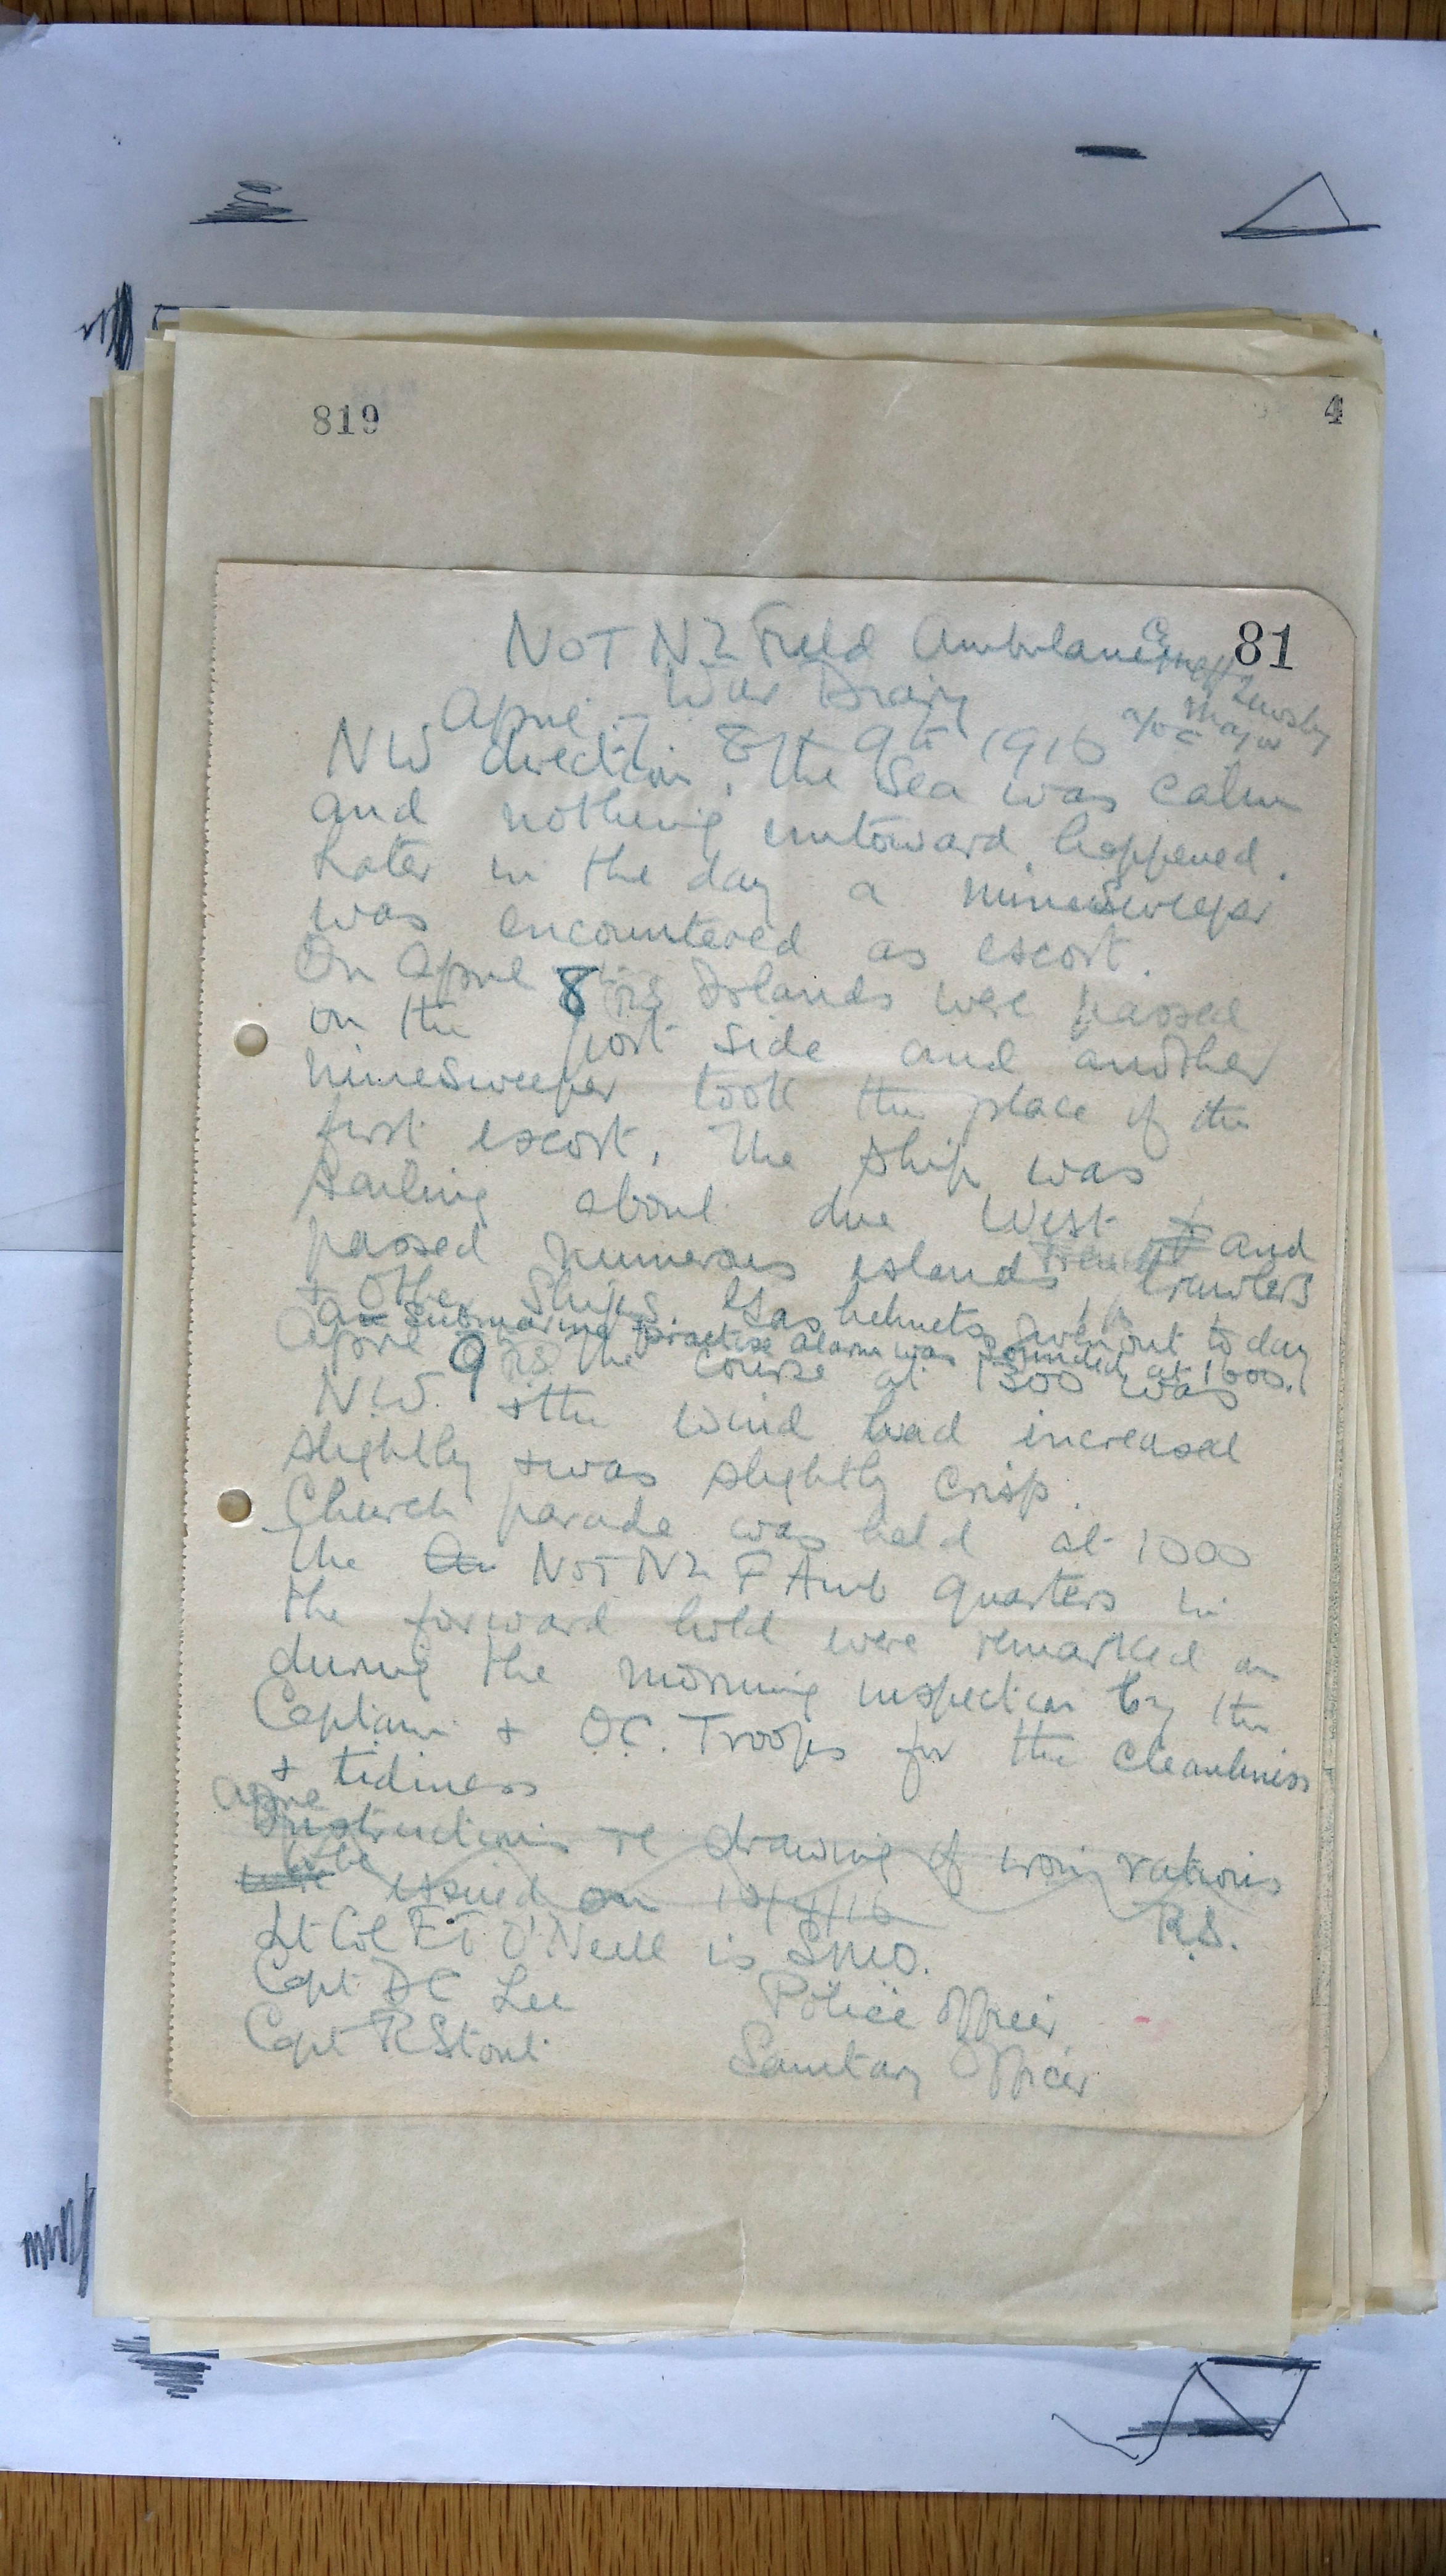 819
4
81
No 1 NZ Field Ambulance
War Diary
April 8th 9th 1916
a/o c Major
NW direction, The Sea was calm
and nothing untoward happened.
Later in the day a minesweeper
was encountered as escort.
On April 8 RS Islands were passed
on the port side and another
minesweeper took the place of the
first escort. The ship was
sailing about due West and
passed numerous islands trawlers
+ other ships. Gas helmets given out today
a submarine practise alarm was sounded at 1000.
April 9 RS The course at 1300 was
N.W. + the wind had increased
slightly + was slightly crisp.
Church parade was held at 1000
The No 1 NZ F Amb quarters in
the forward hold were remarked on
during the morning inspection by the
Captain + O.C. Troops for the cleanliness
+ tidiness
Instructions re drawing of iron rations
to be issued on 10/4/16
R.S.
Lt Col E J O'Neill is SMO.
Capt D C Lee Police Officer
Capt R Stout Sanitary Officer